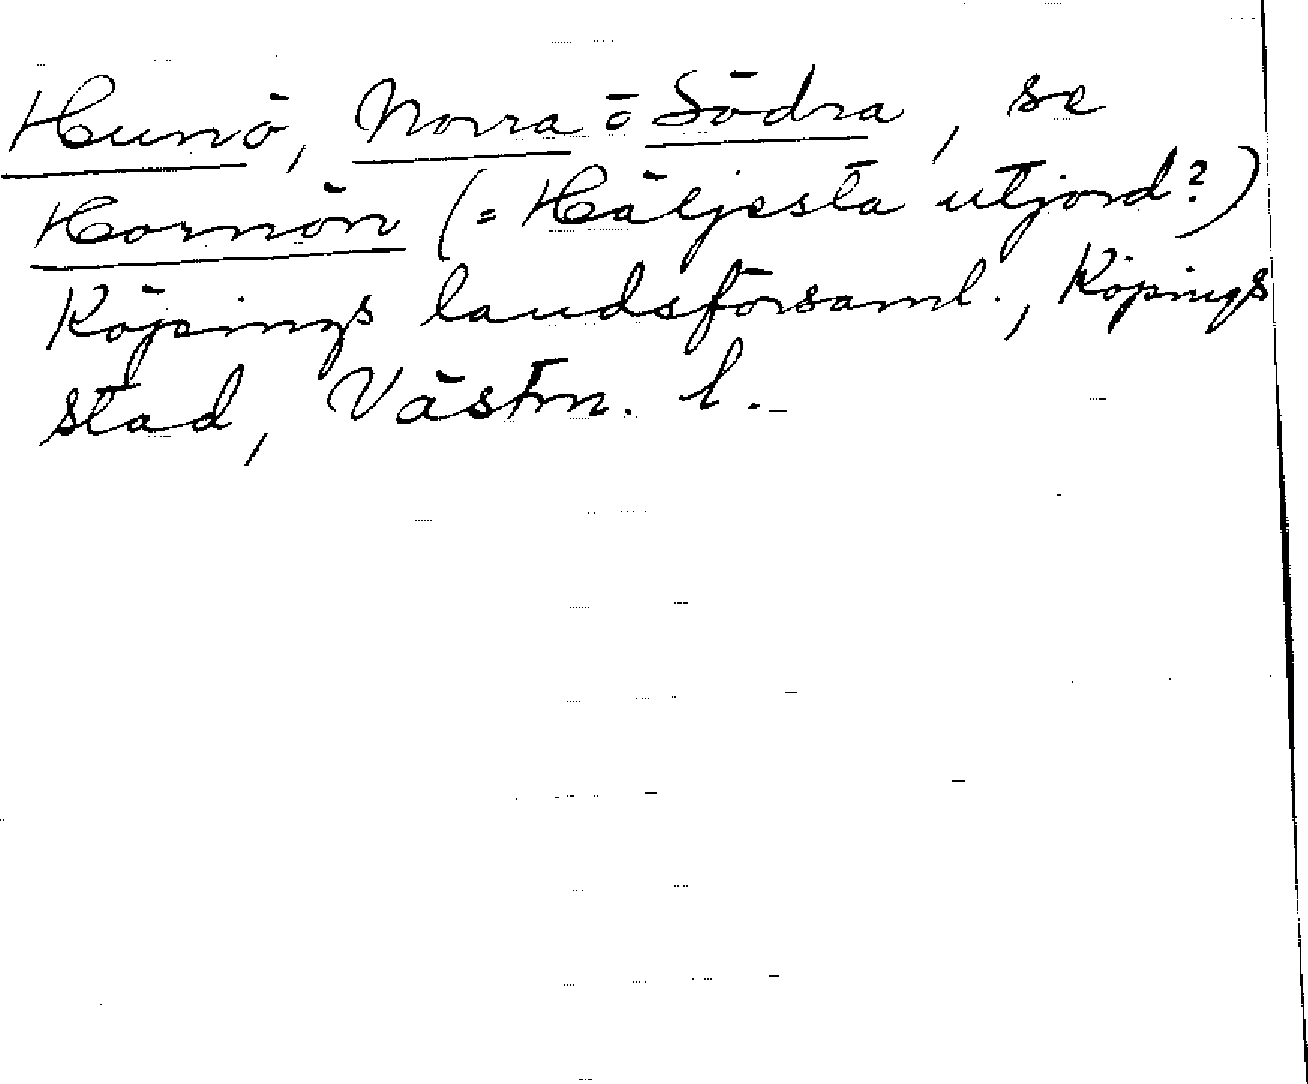 Hunö, Norra o Södra, se
Hornön (= Häljesta utjord?)
Köpings landsförsaml., Köpings
stad, Västm. l.